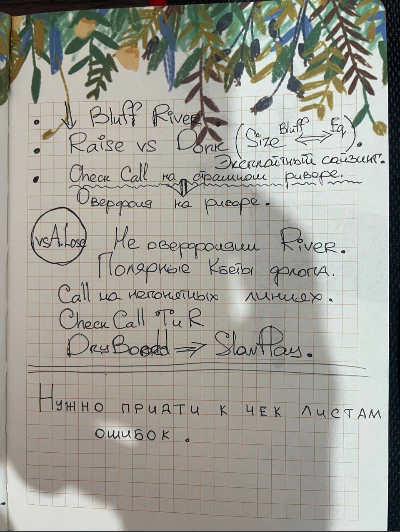 • ↓ Bluff River.
• Raise vs Donk (Size Bluff ⟷ Eq).
Эксплойтный сайзинг.
• Check Call на страшном ривере.
⇓
Оверфолд на ривере.
vsA.Lose Не оверфолдили River.
Полярные Кбеты флопа.
Call на непонятных линиях.
Check Call T и R
Dry Board ⇒ Slow Play.
Нужно прийти к чек листам
ошибок.